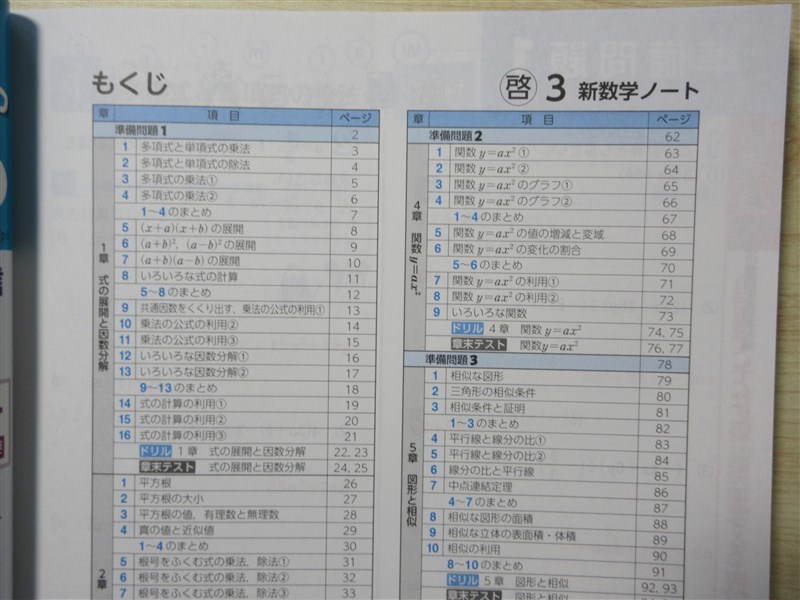 もくじ
啓 3 新数学ノート
章 項目 ページ
準備問題1 2
1章 式の展開と因数分解
1 多項式と単項式の乗法 3
2 多項式と単項式の除法 4
3 多項式の乗法① 5
4 多項式の乗法② 6
1〜4のまとめ 7
5 (x+a)(x+b)の展開 8
6 (a+b)², (a−b)²の展開 9
7 (a+b)(a−b)の展開 10
8 いろいろな式の計算 11
5〜8のまとめ 12
9 共通因数をくくり出す、乗法の公式の利用① 13
10 乗法の公式の利用② 14
11 乗法の公式の利用③ 15
12 いろいろな因数分解① 16
13 いろいろな因数分解② 17
9〜13のまとめ 18
14 式の計算の利用① 19
15 式の計算の利用② 20
16 式の計算の利用③ 21
ドリル 1章 式の展開と因数分解 22, 23
章末テスト 式の展開と因数分解 24, 25
2章
1 平方根 26
2 平方根の大小 27
3 平方根の値、有理数と無理数 28
4 真の値と近似値 29
1〜4のまとめ 30
5 根号をふくむ式の乗法、除法① 31
6 根号をふくむ式の乗法、除法② 32
7 根号をふくむ式の乗法、除法③ 33
章 項目 ページ
準備問題2 62
4章 関数y=ax²
1 関数y=ax²① 63
2 関数y=ax²② 64
3 関数y=ax²のグラフ① 65
4 関数y=ax²のグラフ② 66
1〜4のまとめ 67
5 関数y=ax²の値の増減と変域 68
6 関数y=ax²の変化の割合 69
5〜6のまとめ 70
7 関数y=ax²の利用① 71
8 関数y=ax²の利用② 72
9 いろいろな関数 73
ドリル 4章 関数y=ax² 74, 75
章末テスト 関数y=ax² 76, 77
準備問題3 78
5章 図形と相似
1 相似な図形 79
2 三角形の相似条件 80
3 相似条件と証明 81
1〜3のまとめ 82
4 平行線と線分の比① 83
5 平行線と線分の比② 84
6 線分の比と平行線 85
7 中点連結定理 86
4〜7のまとめ 87
8 相似な図形の面積 88
9 相似な立体の表面積・体積 89
10 相似の利用 90
8〜10のまとめ 91
ドリル 5章 図形と相似 92, 93
章末テスト 図形と相似